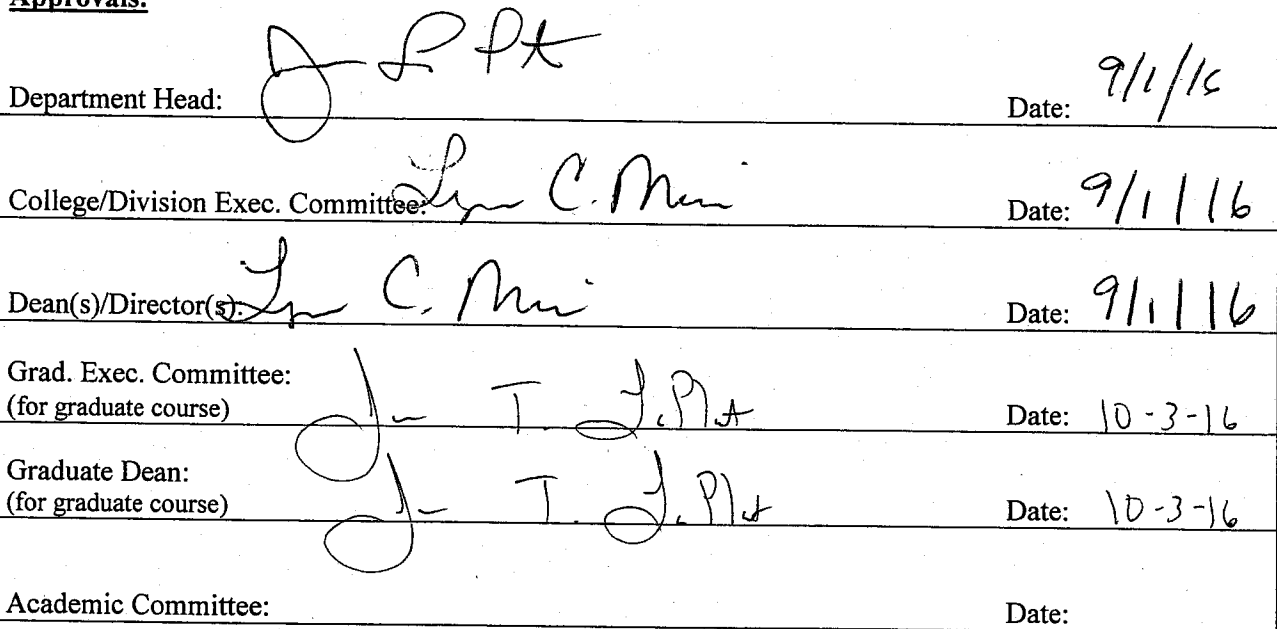 Approvals:
Department Head: Date: 9/1/16
College/Division Exec. Committee: C. Date: 9/1/16
Dean(s)/Director(s): C. Date: 9/1/16
Grad. Exec. Committee:
(for graduate course) T. Date: 10-3-16
Graduate Dean:
(for graduate course) T. Date: 10-3-16
Academic Committee: Date: